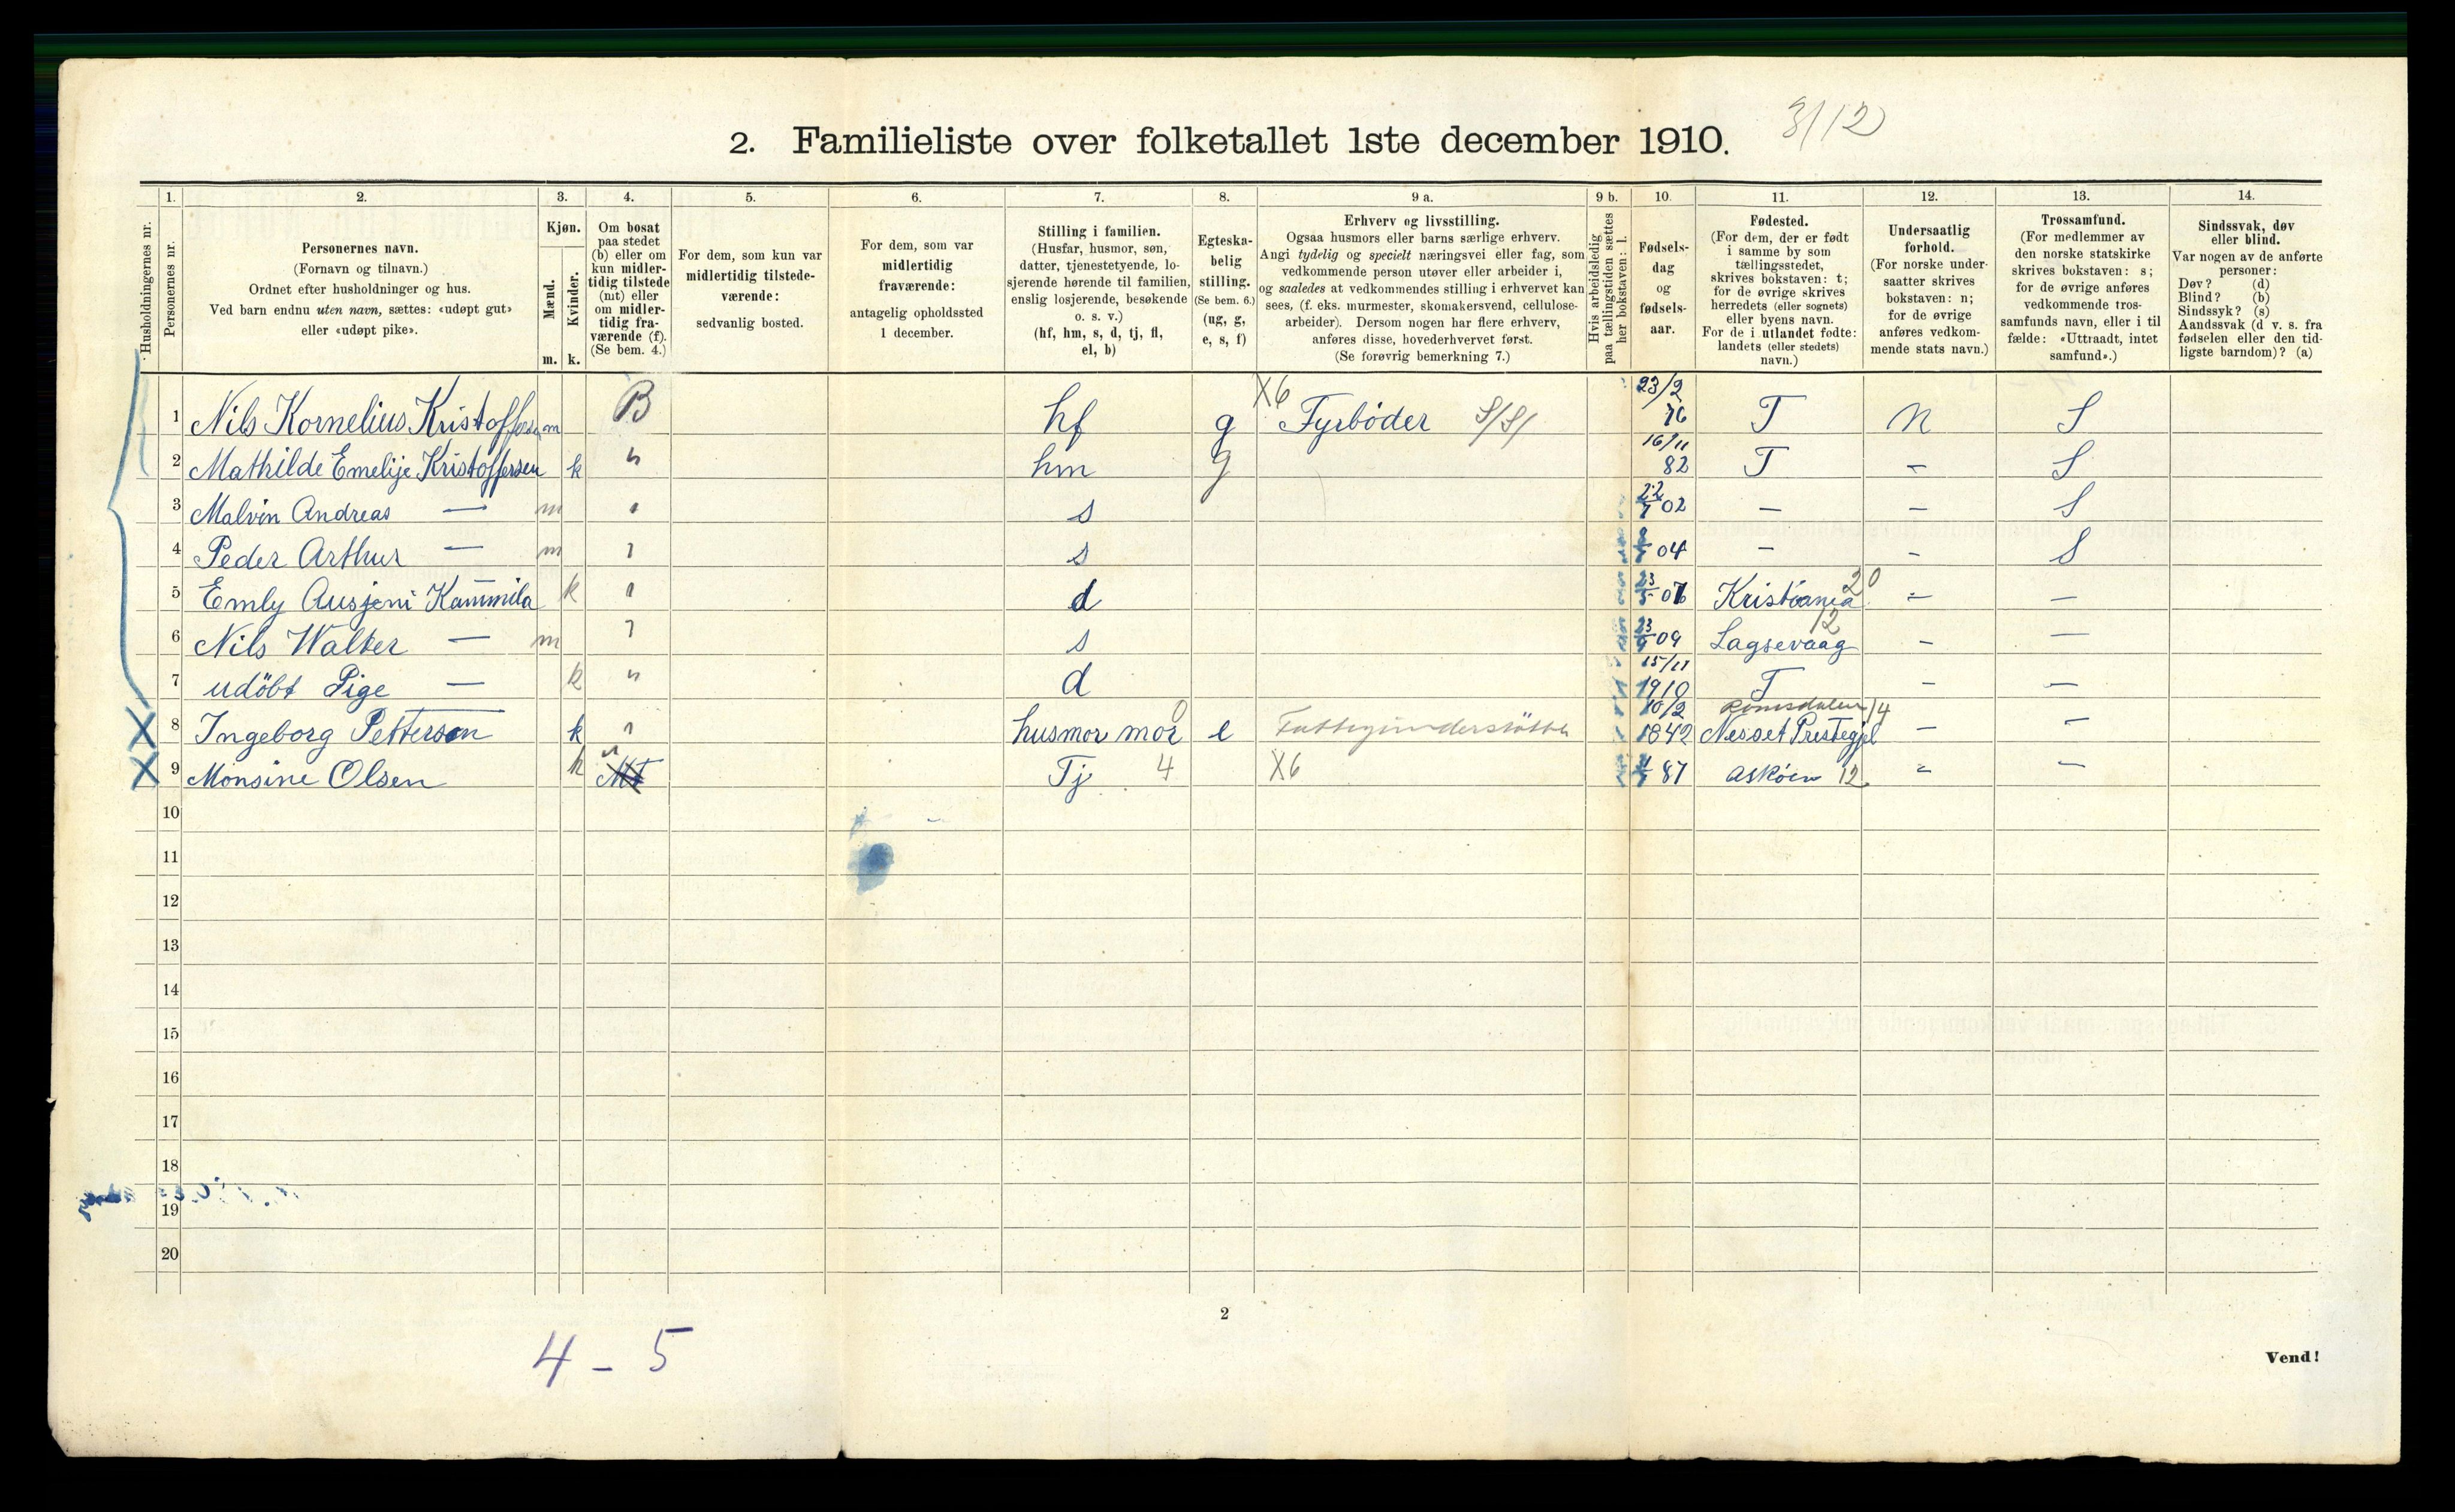 3/12
2. Familieliste over folketallet 1ste december 1910.
1. 2. 3. 4. 5. 6. 7. 8. 9 a. 9 b. 10. 11. 12. 13. 14.
Husholdningernes nr.
Personernes nr.
Personernes navn.
(Fornavn og tilnavn.)
Ordnet efter husholdninger og hus.
Ved barn endnu uten navn, sættes: «udøpt gut»
eller «udøpt pike».
Kjøn.
Mænd.
Kvinder.
m. k.
Om bosat
paa stedet
(b) eller om
kun midler-
tidig tilstede
(mt) eller
om midler-
tidig fra-
værende (f).
(Se bem. 4.)
For dem, som kun var
midlertidig tilstede-
værende:
sedvanlig bosted.
For dem, som var
midlertidig
fraværende:
antagelig opholdssted
1 december.
Stilling i familien.
(Husfar, husmor, søn,
datter, tjenestetyende, lo-
sjerende hørende til familien,
enslig losjerende, besøkende
o. s. v.)
(hf, hm, s, d, tj, fl,
el, b)
Egteska-
belig
stilling.
(Se bem. 6.)
(ug, g,
e, s, f)
Erhverv og livsstilling.
Ogsaa husmors eller barns særlige erhverv.
Angi tydelig og specielt næringsvei eller fag, som
vedkommende person utøver eller arbeider i,
og saaledes at vedkommendes stilling i erhvervet kan
sees, (f. eks. murmester, skomakersvend, cellulose-
arbeider). Dersom nogen har flere erhverv,
anføres disse, hovederhvervet først.
(Se forøvrig bemerkning 7.)
Hvis arbeidsledig
paa tællingstiden sættes
her bokstaven: l.
Fødsels-
dag
og
fødsels-
aar.
Fødested.
(For dem, der er født
i samme by som
tællingsstedet,
skrives bokstaven: t;
for de øvrige skrives
herredets (eller sognets)
eller byens navn.
For de i utlandet fødte:
landets (eller stedets)
navn.)
Undersaatlig
forhold.
(For norske under-
saatter skrives
bokstaven: n;
for de øvrige
anføres vedkom-
mende stats navn.)
Trossamfund.
(For medlemmer av
den norske statskirke
skrives bokstaven: s;
for de øvrige anføres
vedkommende tros-
samfunds navn, eller i til
fælde: «Uttraadt, intet
samfund».)
Sindssvak, døv
eller blind.
Var nogen av de anførte
personer:
Døv? (d)
Blind? (b)
Sindssyk? (s)
Aandssvak (d v. s. fra
fødselen eller den tid-
ligste barndom)? (a)
1 Nils Kornelius Kristoffersen m B hf g X6 Fyrbøder S/S/ 23/2 76 T N S
2 Mathilde Emelije Kristoffersen k " hm g 16/11 82 T - S
3 Malvin Andreas — m " s 22/7 02 — - S
4 Peder Arthur — m " s 04 - - S
5 Emly Ausjeni Kammila — k " d 23/5 Kristiania 20 - —
6 Nils Walter — m " s 23/9 09 Lagsevaag 12 - —
7 udöbt Pige — k " d 15/11 1910 T - —
X 8 Ingeborg Petterson k " husmor mor 0 e Fattigunderstøttet 10/2 1842 Romsdalen 14 Nesset Prestegjel - -
X 9 Monsine Olsen k " Mt Tj 4 X6 87 Askøen 12 - -
10
11
12
13
14
15
16
17
18
19
20
2
4 - 5
Vend!